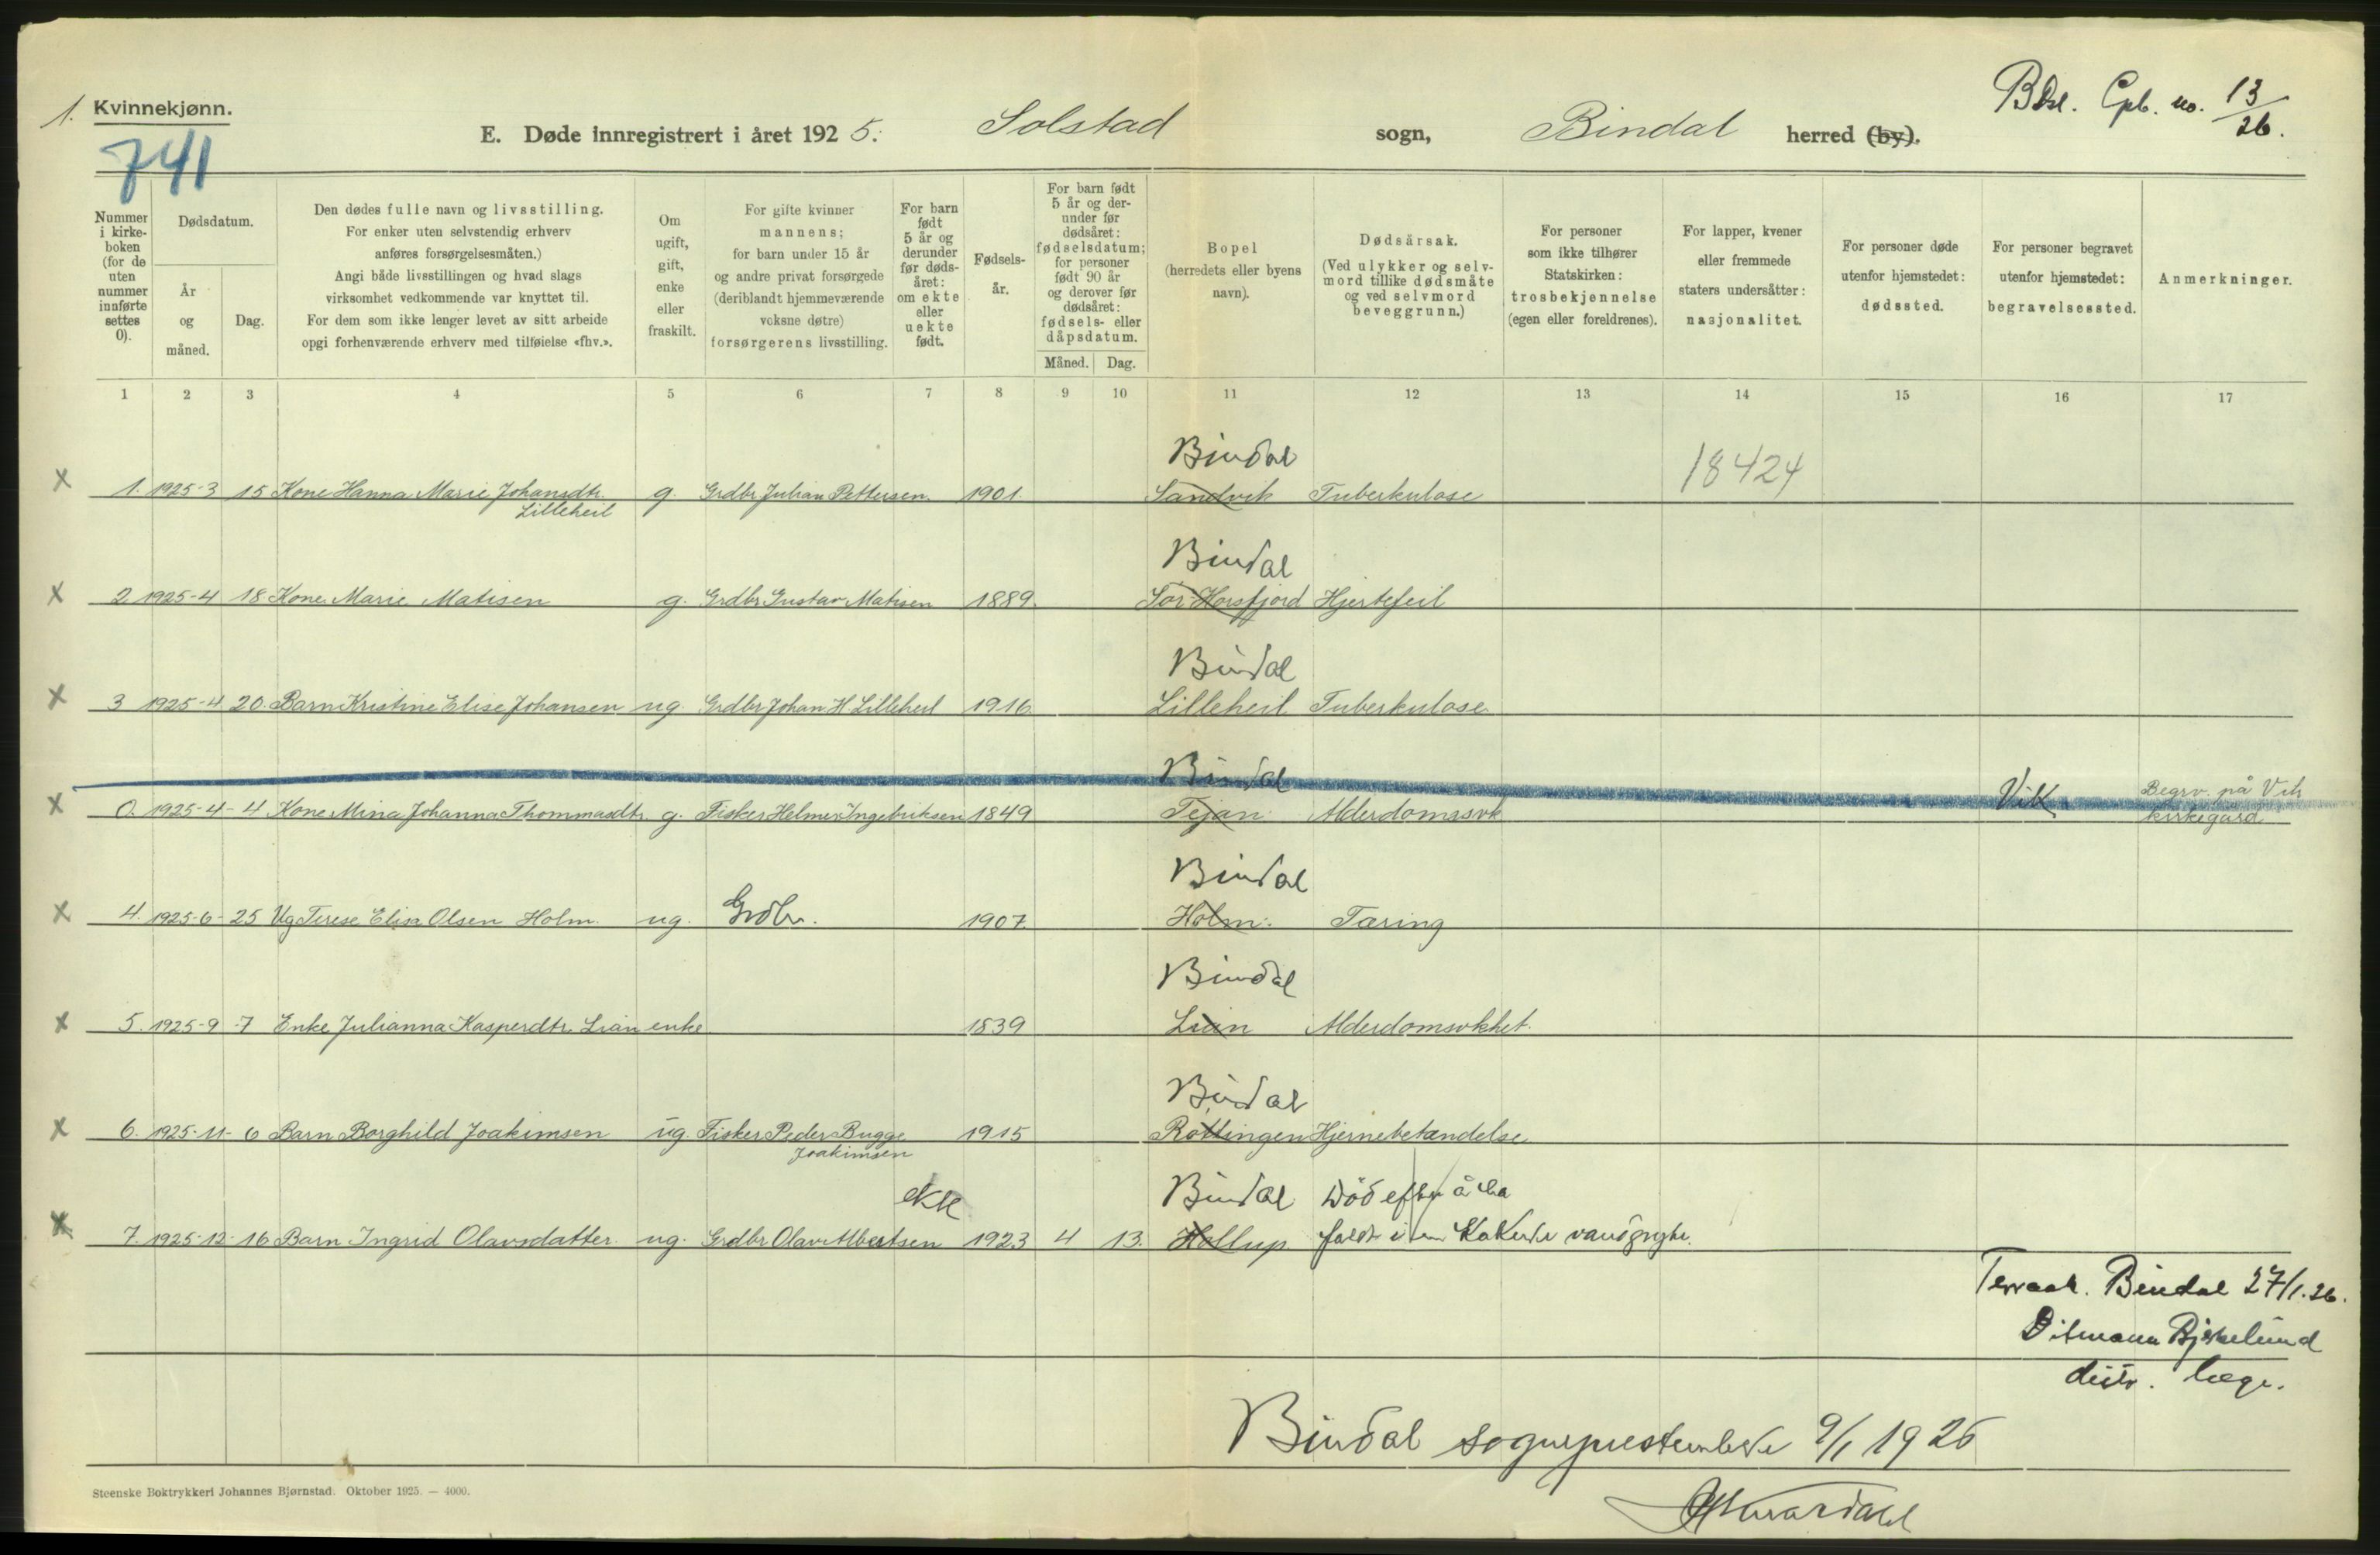 1. Kvinnekjønn.
741
E. Døde innregistrert i året 1925. Solstad sogn, Bindal herred (by).
Gpb. no. 13/26.
Nummer i kirke-boken (for de uten nummer innførte settes 0).
Dødsdatum.
År og måned.
Dag.
Den dødes fulle navn og livsstilling.
For enker uten selvstendig erhverv
anføres forsørgelsesmåten.)
Angi både livsstillingen og hvad slags
virksomhet vedkommende var knyttet til.
For dem som ikke lenger levet av sitt arbeide
opgi forhenværende erhverv med tilføielse «fhv.».
Om ugift, gift, enke eller fraskilt.
For gifte kvinner
mannens;
for barn under 15 år
og andre privat forsørgede
(deriblandt hjemmeværende
voksne døtre)
forsørgerens livsstilling.
For barn født 5 år og derunder før døds-året: om ekte eller uekte født.
Fødsels-år.
For barn født 5 år og der-under før dødsåret: fødselsdatum; for personer født 90 år og derover før dødsåret: fødsels- eller dåpsdatum.
Måned. Dag.
Bopel
(herredets eller byens
navn).
Dødsårsak.
(Ved ulykker og selv-
mord tillike dødsmåte
og ved selvmord
beveggrunn.)
For personer
som ikke tilhører
Statskirken:
trosbekjennelse
(egen eller foreldrenes).
For lapper, kvener
eller fremmede
staters undersåtter:
nasjonalitet.
For personer døde
utenfor hjemstedet:
dødssted.
For personer begravet
utenfor hjemstedet:
begravelsessted.
Anmerkninger.
1 2 3 4 5 6 7 8 9 10 11 12 13 14 15 16 17
Bindal
18424
x 1. 1925-3 15 Kone Hanna Marie Johansdtr. g. Grdbr Julian Pettersen. 1901. Sandvik Tuberkulose
Lilleheil
Bindal
x 2 1925-4 18 Kone Marie Matisen g. Grdbr Gustav Matisen 1889. Sør-Horsfjord Hjertefeil
Bindal
x 3 1925-4 20. Barn Kristine Elise Johansen ug. Grdbr Johan H Lilleheil 1916 Lilleheil Tuberkulose
Bindal
x 0. 1925-4- 4 Kone Mina Johanna Thommasdtr g. Fisker Helmer Ingebriksen 1849 Tejan Alderdomssvk Vik Begrv. på Vik
kirkegård
Bindal
x 4. 1925-6- 25 Ug Terese Elisa Olsen Holm. ug. Grdbr. 1907. Holm. Tæring
Bindal
x 5. 1925-9 -7 Enke Julianna Kasperdtr. Lian enke 1839 Lian Alderdomsvkhet.
Bindal
x 6. 1925-11- 6 Barn Borghild Joakimsen ug. Fisker Peder Bugge 1915 Røttingen Hjernebetændelse
Joakimsen
ekte Bindal Død efter å ha
x 7. 1925-12- 16 Barn Ingrid Olavsdatter. ug. Grdbr Olav Albertsen 1923 4 13. Hollup. faldt i en kokende vandgryte.
Terraak. Bindal 27/1.26.
Ditmann Bjerkelund
distr. læge.
Bindal sogneprestembede 9/1 1926
Steenske Boktrykkeri Johannes Bjørnstad. Oktober 1925. — 4000.